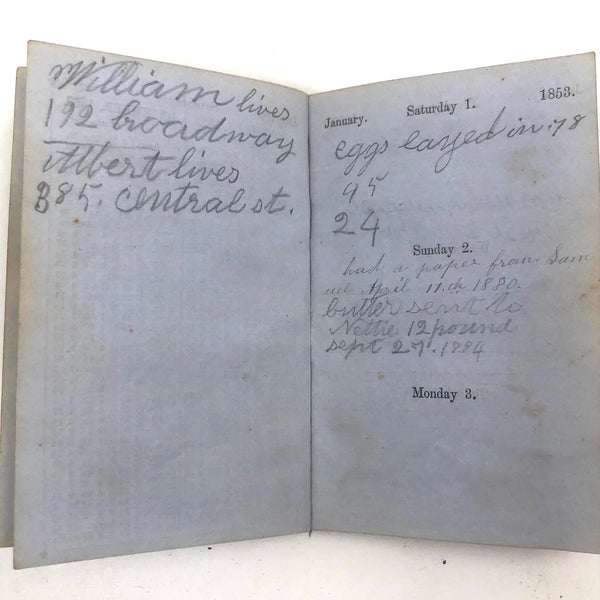 William lives
192 broadway
Albert lives
385. Central st.
January. Saturday 1. 1853.
eggs layed in. 78
95
24
Sunday 2.
had a paper from Sam
uel April 11th 1880.
butter sent to
Nettie 12 pound
sept 27. 1884
Monday 3.